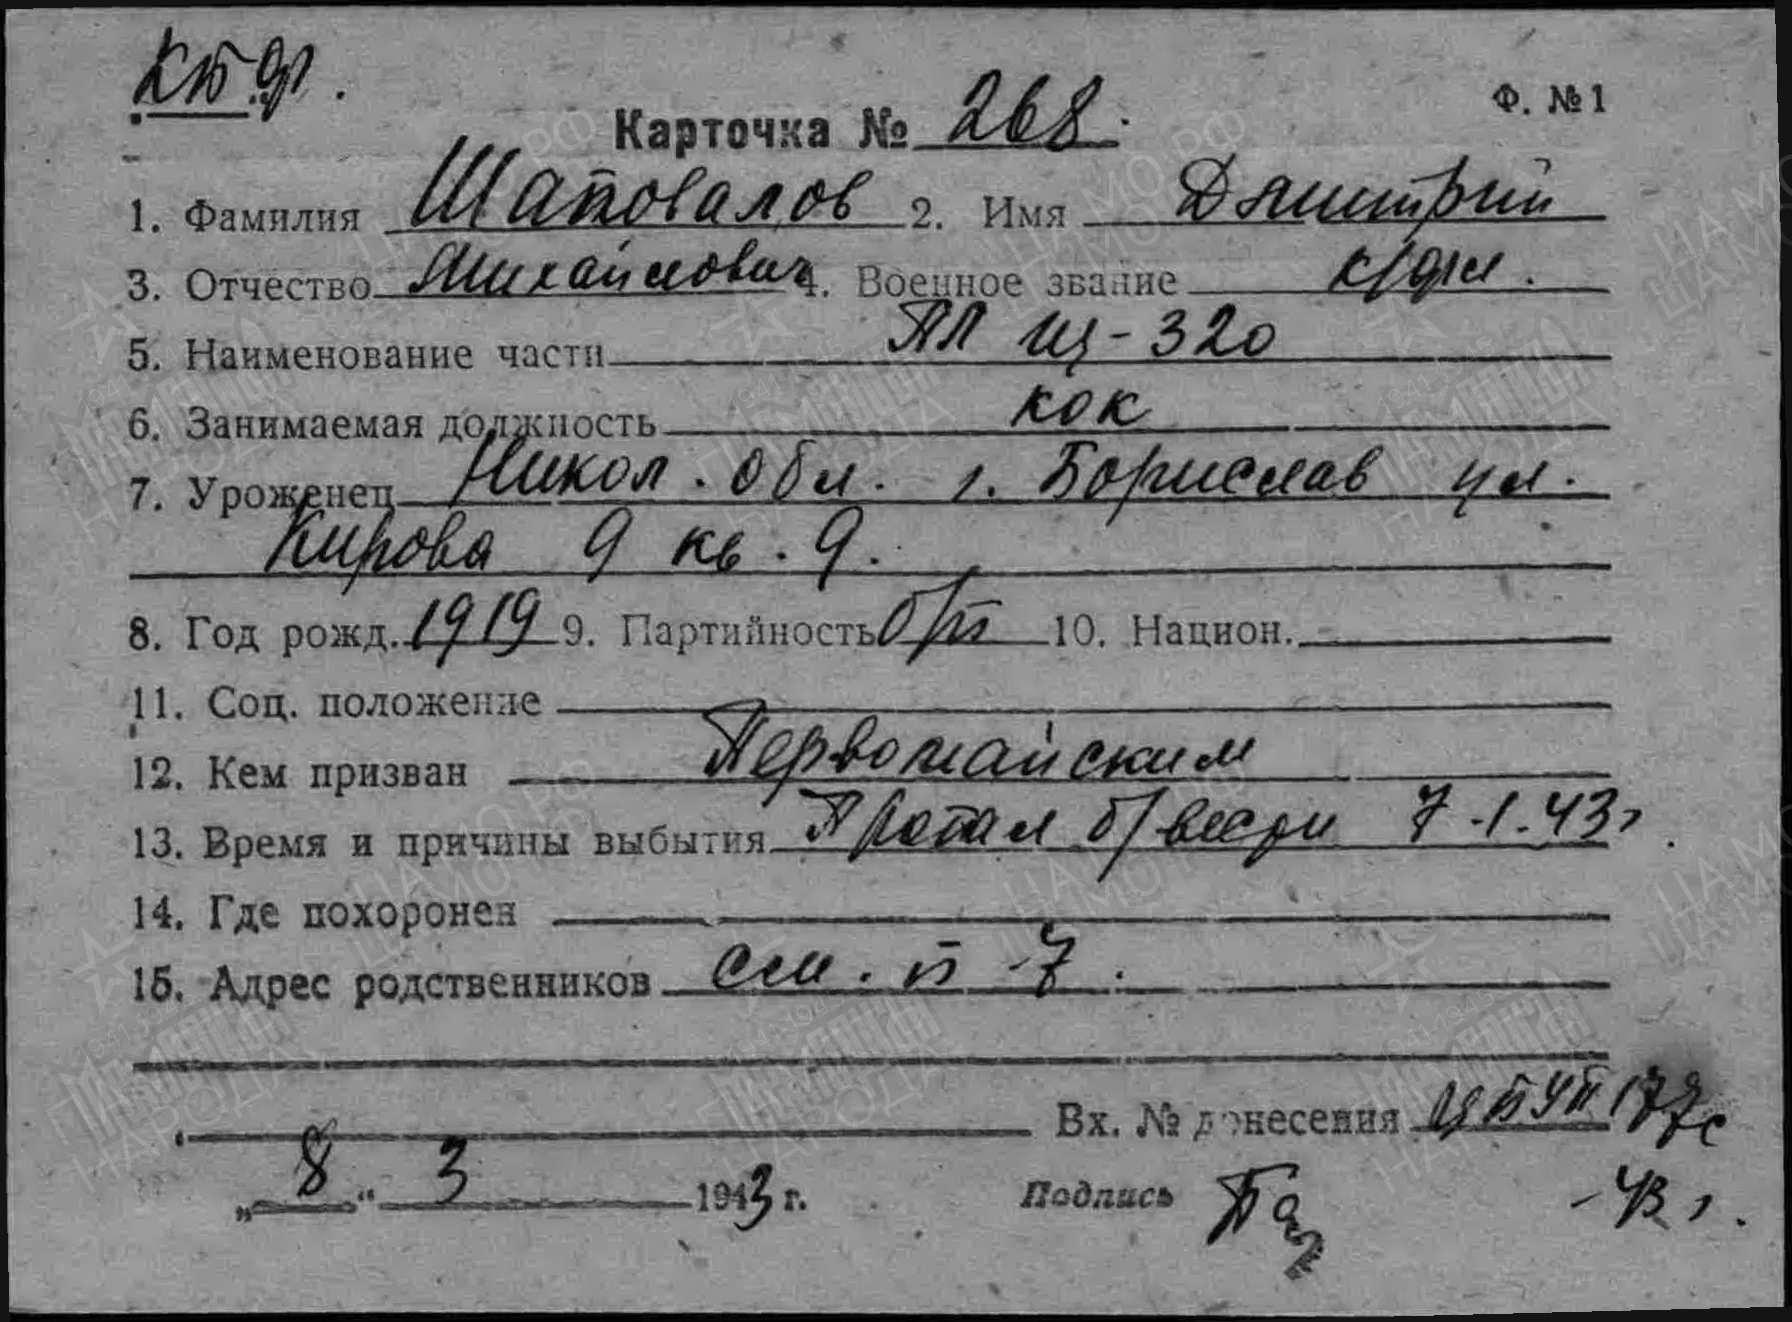 КБФ.
Ф. №1
Карточка № 268.
1. Фамилия Шаповалов 2. Имя Дмитрий
3. Отчество Михайлович 4. Военное звание к/фл.
5. Наименование части ПЛ Щ-320
6. Занимаемая должность кок
7. Уроженец Никол. обл. г. Борислав ул.
Кирова 9 кв. 9.
8. Год рожд. 1919 9. Партийность б/п 10. Национ.
11. Соц. положение
12. Кем призван Первомайским
13. Время и причины выбытия Пропал б/вести 7-1-43г.
14. Где похоронен
15. Адрес родственников см. п-7.
Вх. № донесения ЦБУП 177с
„8“ 3 1943 г. Подпись -43 г.